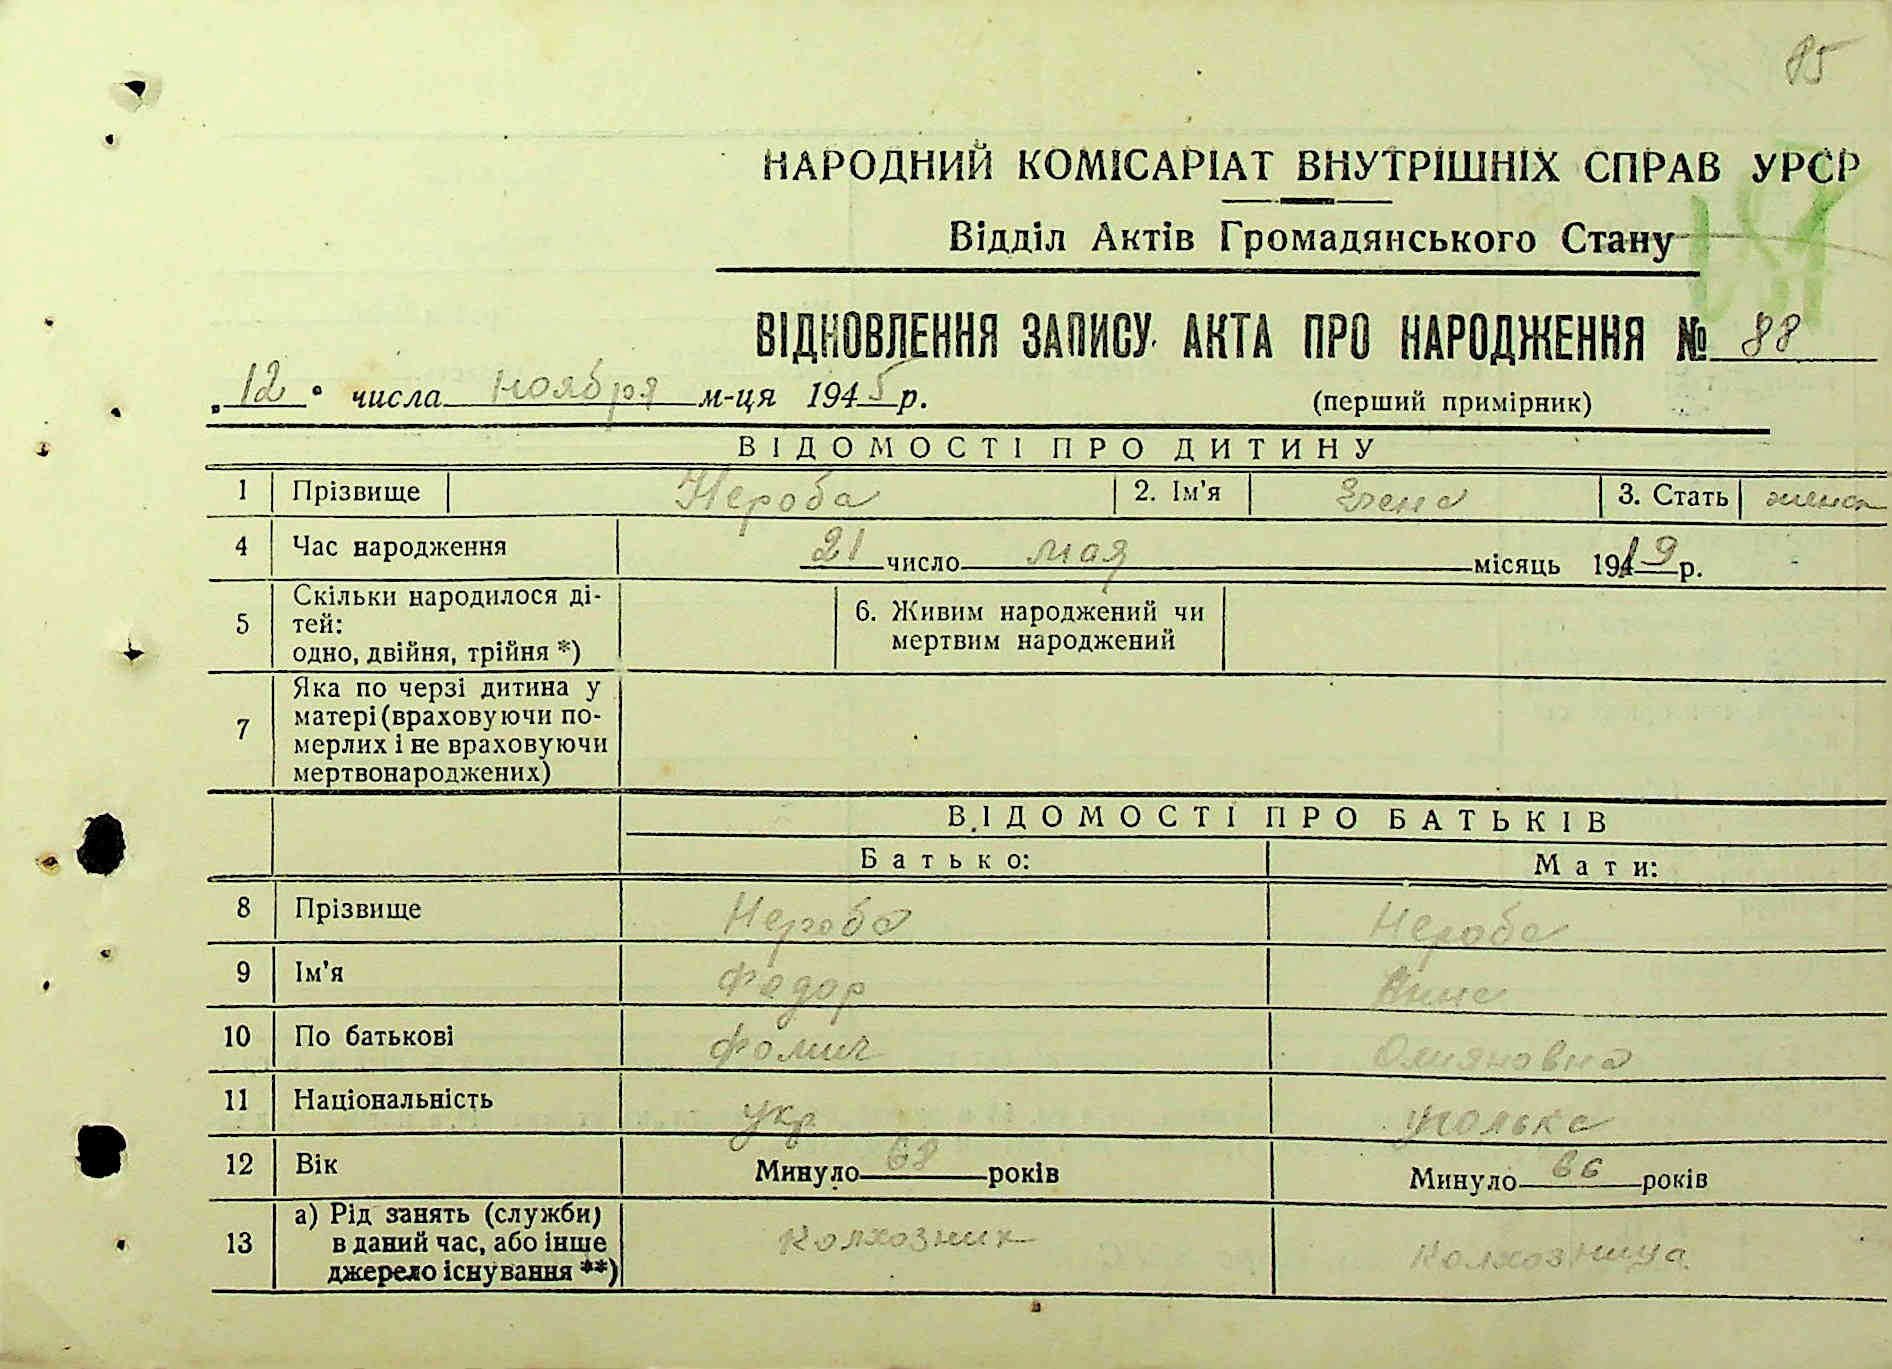 85
НАРОДНИЙ КОМІСАРІАТ ВНУТРІШНІХ СПРАВ УРСР
Відділ Актів Громадянського Стану
ВІДНОВЛЕННЯ ЗАПИСУ АКТА ПРО НАРОДЖЕННЯ № 88
„12" числа ноября м-ця 1945 р. (перший примірник)
ВІДОМОСТІ ПРО ДИТИНУ
1 Прізвище Нероба 2. Ім'я Елена 3. Стать женск
4 Час народження 21 число мая місяць 1919 р.
5 Скільки народилося ді-
тей:
одно, двійня, трійня *)
6. Живим народжений чи
мертвим народжений
7 Яка по черзі дитина у
матері (враховуючи по-
мерлих і не враховуючи
мертвонароджених)
ВІДОМОСТІ ПРО БАТЬКІВ
Батько: Мати:
8 Прізвище Нероба Нероба
9 Ім'я Федор Анна
10 По батькові Фомич Омияновна
11 Національність укр полька
12 Вік Минуло 68 років Минуло 66 років
13 а) Рід занять (служби)
в даний час, або інше
джерело існування **)
Колхозник Колхозница